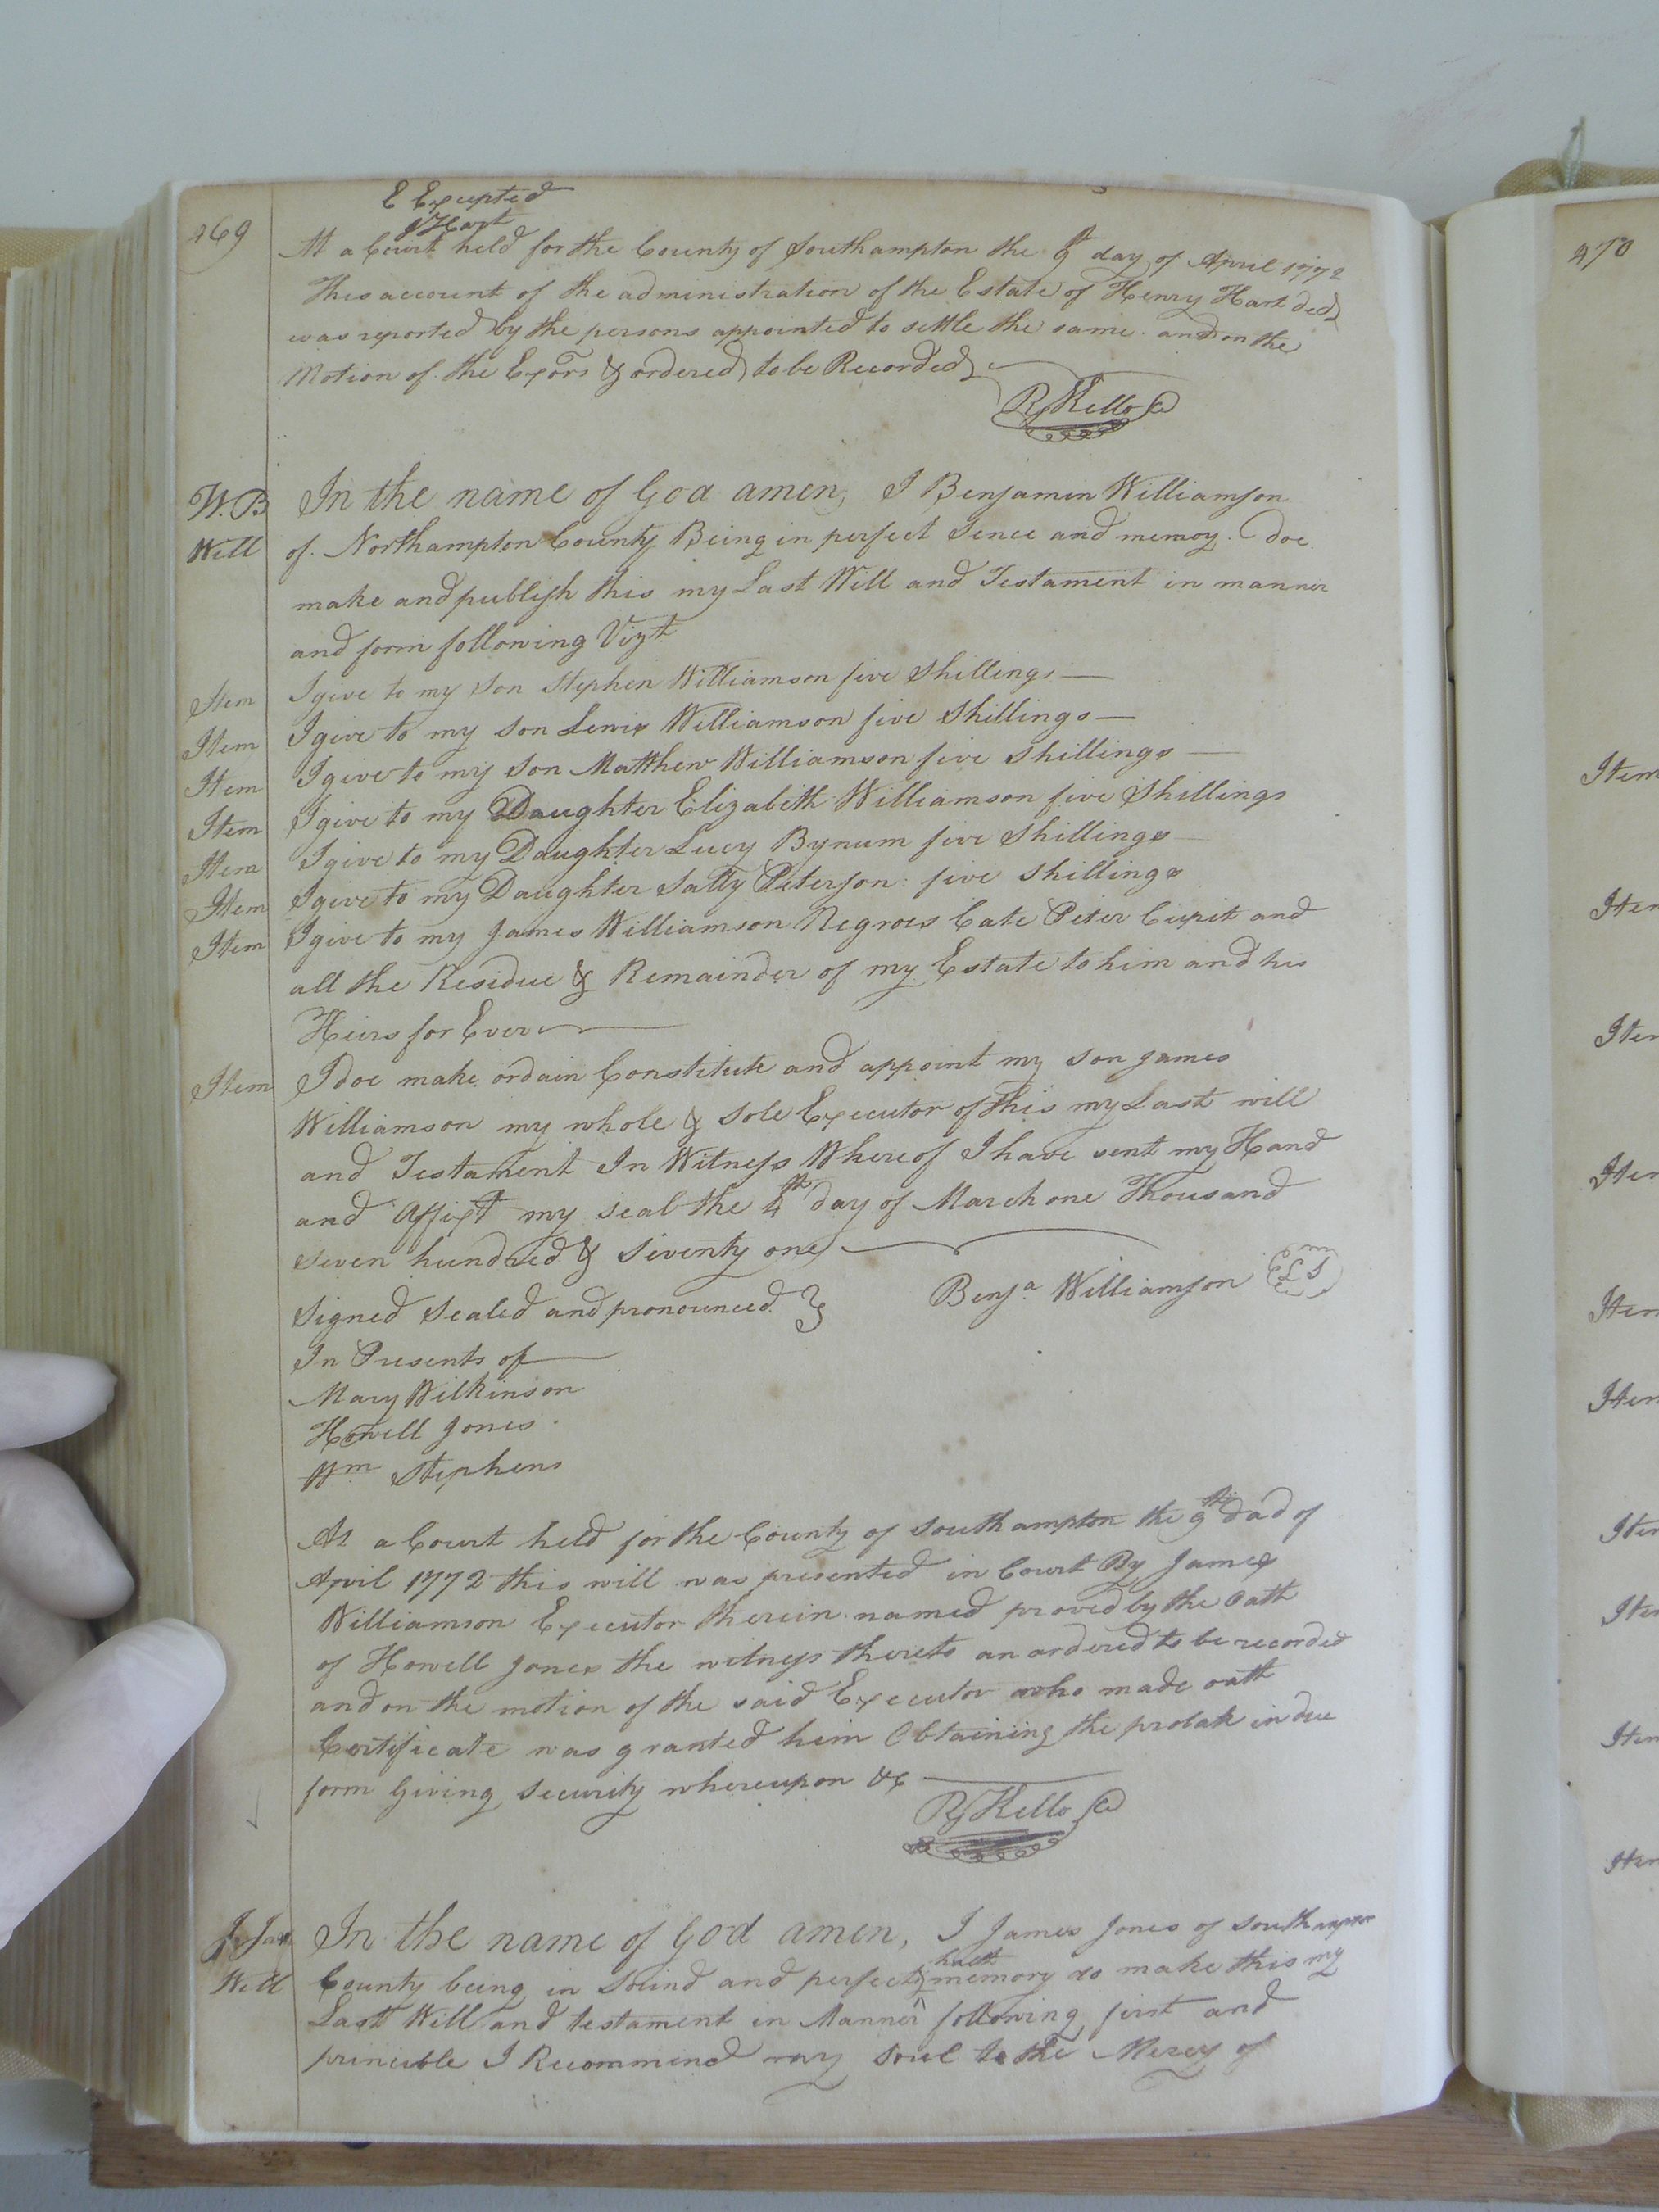 469
E Excepted
J Hart
At a Court held for the County of Southampton the 9th day of April 1772
This account of the administration of the Estate of Henry Hart decd
was reported by the persons appointed to settle the same and on the
Motion of the Exors & ordered to be Recorded
R Kello
W. B In the name of God amen, I Benjamin Williamson
Will of Northampton County Being in perfect Sence and memoy. doe
make and publish this my Last Will and Testament in manner
and form following Vizt
Item I give to my Son Stephen Williamson five Shillings
Item I give to my Son Lewis Williamson five Shillings
Item I give to my Son Matthew Williamson five Shillings
Item I give to my Daughter Elizabeth Williamson five Shillings
Item I give to my Daughter Lucy Bynum five Shillings
Item I give to my Daughter Sally Peterson five Shillings
Item I give to my James Williamson Negroes Cate Peter Cupit and
all the Residue & Remainder of my Estate to him and his
Heirs for Ever
Item I doe make ordain Constitute and appoint my son James
Williamson my whole & Sole Executor of this my Last will
and Testament In Witness Whereof I have sent my Hand
and Affixt my seal the 4th day of March one Thousand
seven hundred & Seventy one
Benja Williamson LS
Signed Sealed and pronounced
In Presents of
Mary Wilkinson
Howell Jones
Wm Stephens
At a Court held for the County of Southampton the 9th dad of
April 1772 this will was presented in Court By James
Williamson Executor therein named proved by the Oath
of Howell Jones the witness thereto an ordered to be recorded
and on the motion of the said Executor who made oath
Certificate was granted him Obtaining the probate in due
form Giving Security whereupon &c
R Kello
J. Jones In the name of God amen, I James Jones of Southampton
Will County being in Sound and perfect & memory do make this my
Last Will and testament in Manner following, first and
princible I Recommend my Soul to the Mercy of
470
Item
Item
Item
Item
Item
Item
Item
Item
Item
Item